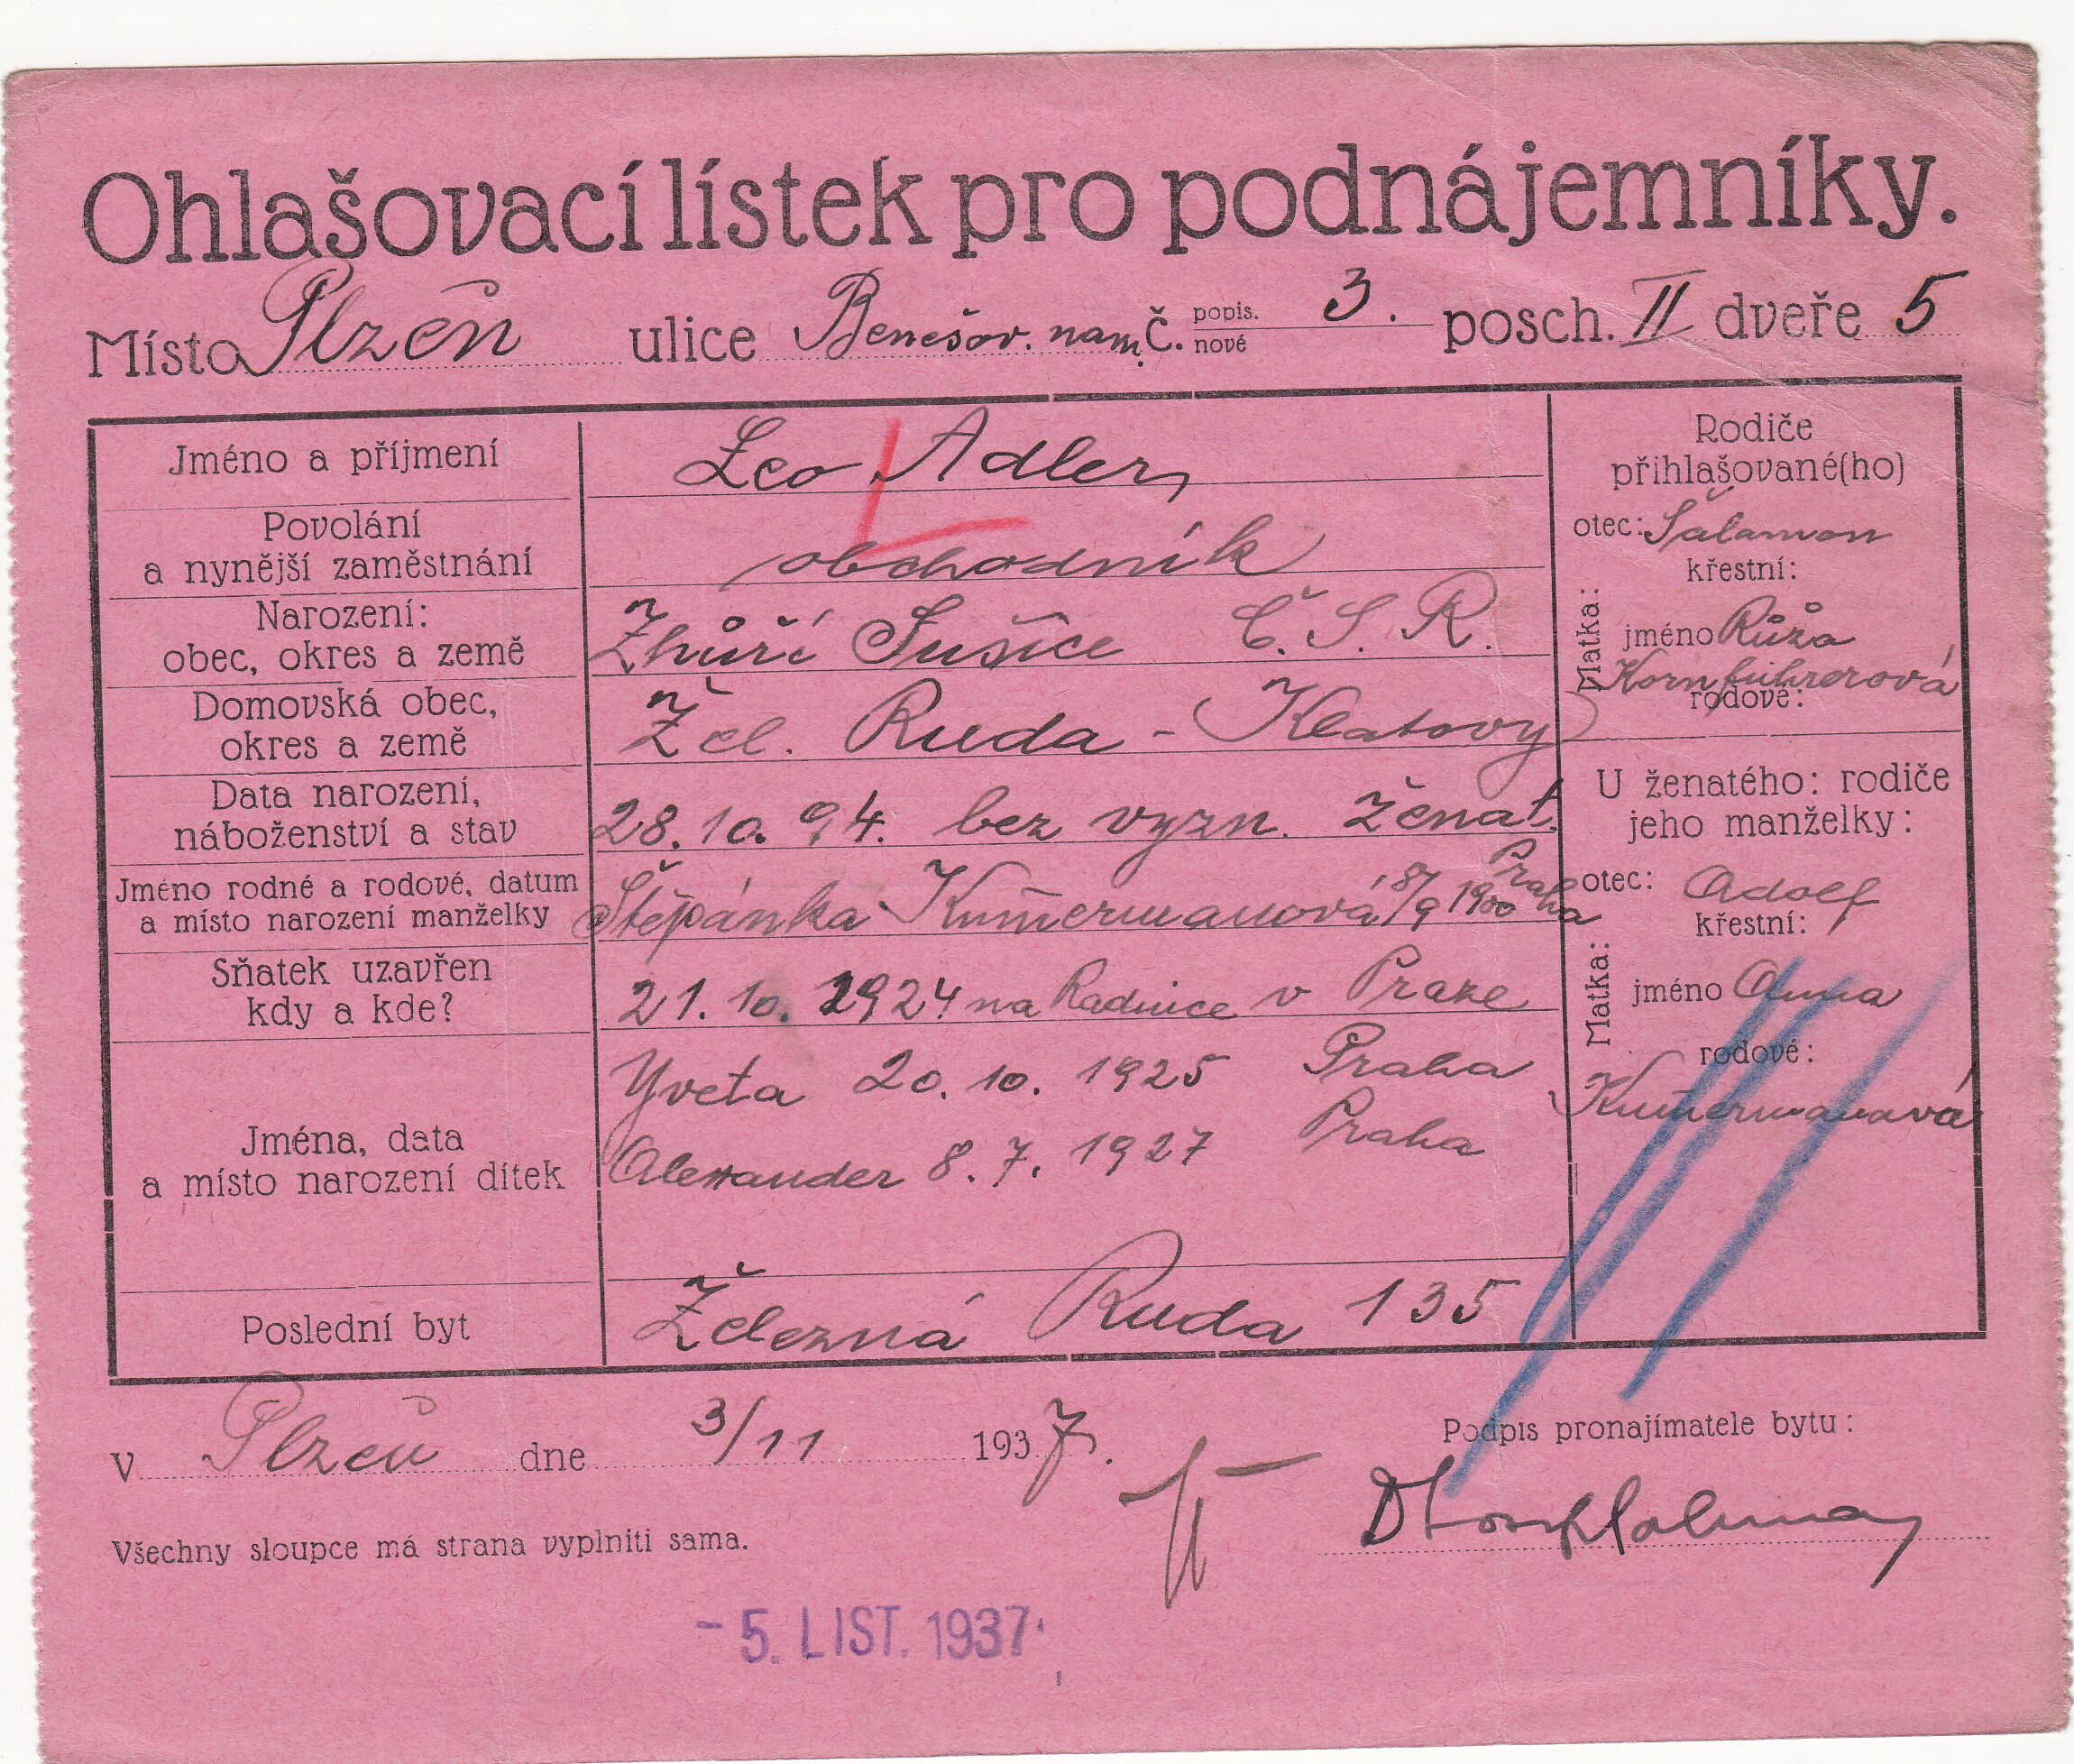 Ohlašovací lístek pro podnájemníky.
Místo Plzeň ulice Benešov. nam. č. popis. nové 3. posch. II dveře 5
Jméno a příjmení
Leo Adler
Povolání
a nynější zaměstnání
obchodník
Narození:
obec, okres a země
Zhůří Sušice Č. S. R.
Domovská obec,
okres a země
Žel. Ruda - Klatovy
Data narození,
náboženství a stav
28. 10. 94. bez vyzn. ženat.
Jméno rodné a rodové, datum
a místo narození manželky
Štěpánka Kum̄ermanová 8/9 1900 Praha
Sňatek uzavřen
kdy a kde?
21. 10. 1924 na Radnice v Praze
Jména, data
a místo narození dítek
Yveta 20. 10. 1925 Praha
Alexander 8. 7. 1927 Praha
Poslední byt
Železná Ruda 135
Rodiče
přihlašované(ho)
otec: Šalamon
křestní:
Matka:
jméno Růža
Kornführerová
rodové:
U ženatého: rodiče
jeho manželky:
otec: Adolf
křestní:
Matka:
jméno Anna
rodové:
Kum̄ermanová
V Plzeň dne 3/11 1937.
Podpis pronajímatele bytu:
Všechny sloupce má strana vyplniti sama.
- 5. LIST. 1937